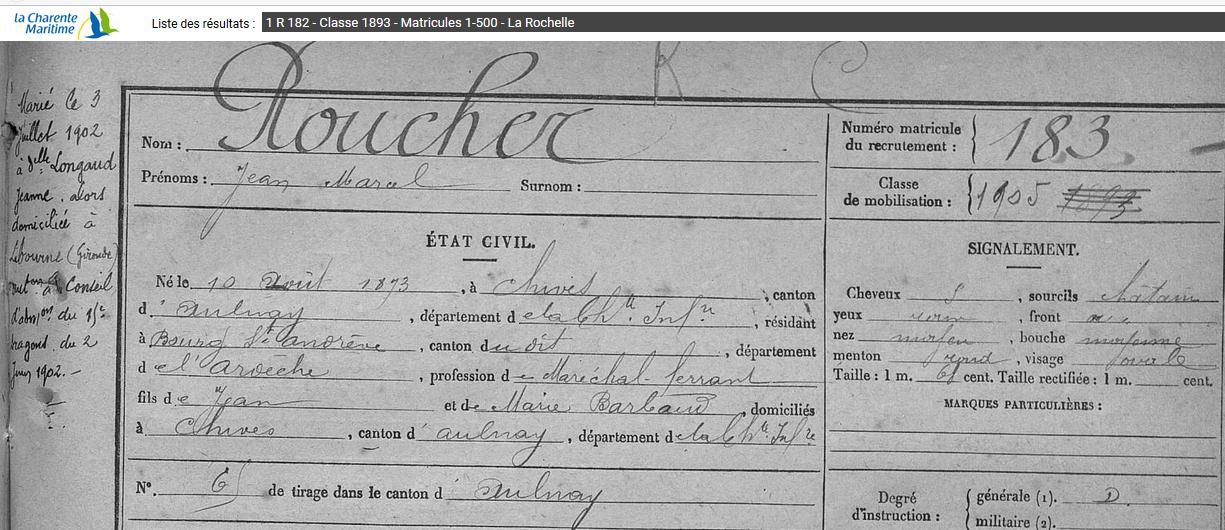 la Charente Maritime
Liste des résultats : 1 R 182 - Classe 1893 - Matricules 1-500 - La Rochelle
R C
Marié le 3
Juillet 1902
à Delle Longaud
Jeanne, alors
domiciliée à
Libourne (Gironde)
Conseil
d'admion du 15e
dragons du 2
Juin 1902.-
Nom : Roucher
Prénoms : Jean Marcel Surnom :
ÉTAT CIVIL.
Né le 10 Août 1873, à Chives, canton
d'Aulnay, département de la Chte Infre, résidant
à Bourg St Andrève, canton du dit, département
de l'Ardèche, profession de Maréchal-ferrant
fils de Jean et de Marie Barbaud, domiciliés
à Chives, canton d'aulnay, département de la Chte Infre
N°. 65 de tirage dans le canton d'Aulnay
Numéro matricule
du recrutement : 183
Classe
de mobilisation : 1905 1893
SIGNALEMENT.
Cheveux, sourcils châtain
yeux, front
nez moyen, bouche moyenne
menton rond, visage ovale
Taille : 1 m. cent. Taille rectifiée : 1 m. cent.
MARQUES PARTICULIÈRES :
Degré
d'instruction :
générale (1). D
militaire (2).